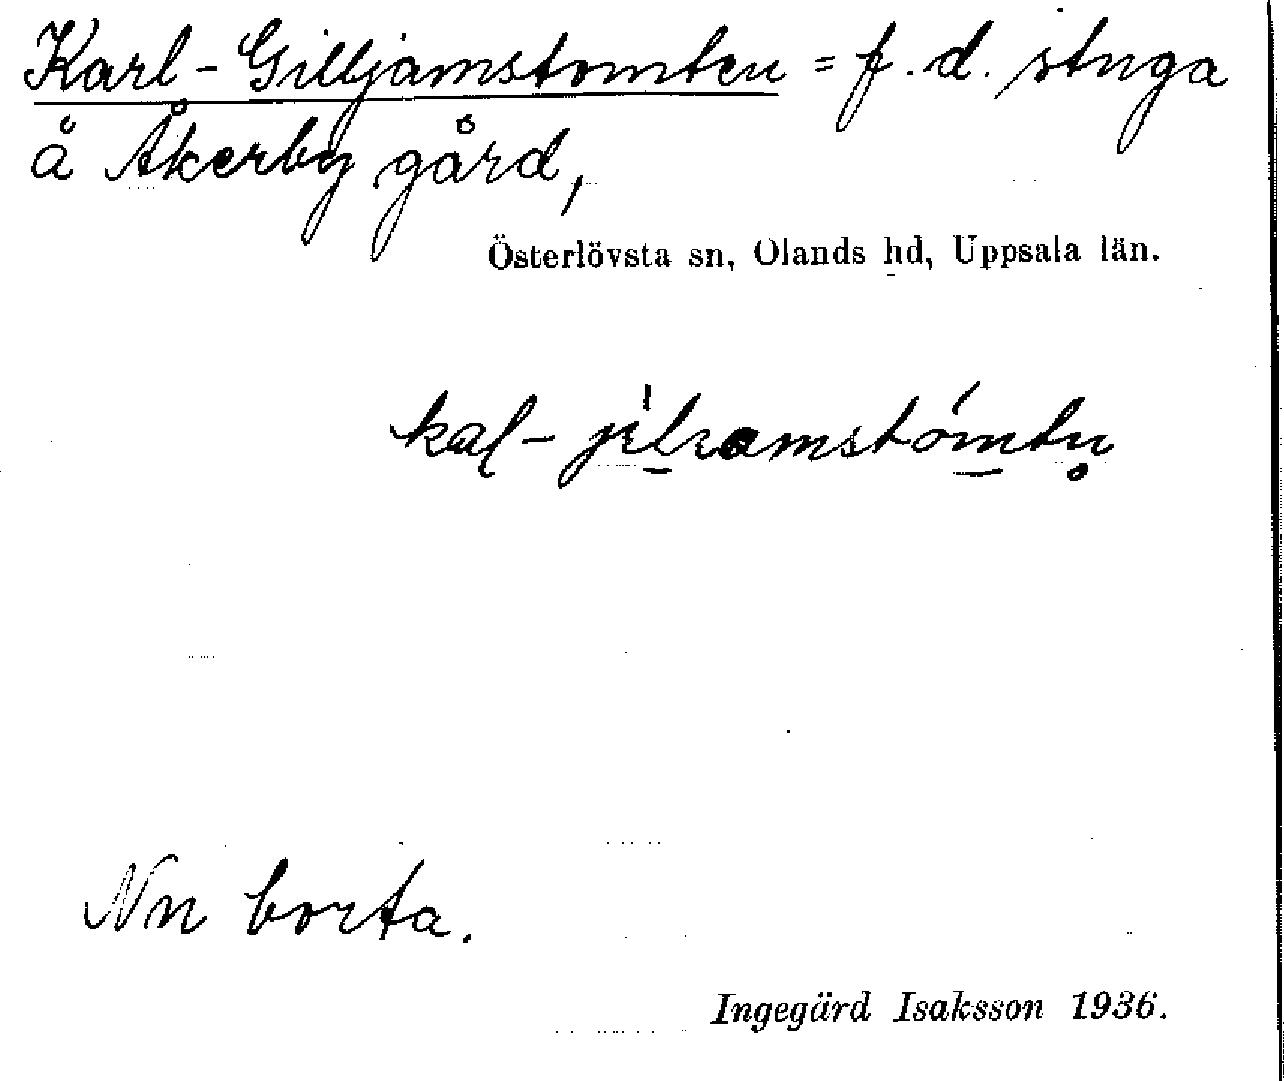 Karl-Gilljamstomten = f.d. stuga
å Åkerby gård,
Österlövsta sn, Olands hd, Uppsala län.
Nu borta.
Ingegärd Isaksson 1936.